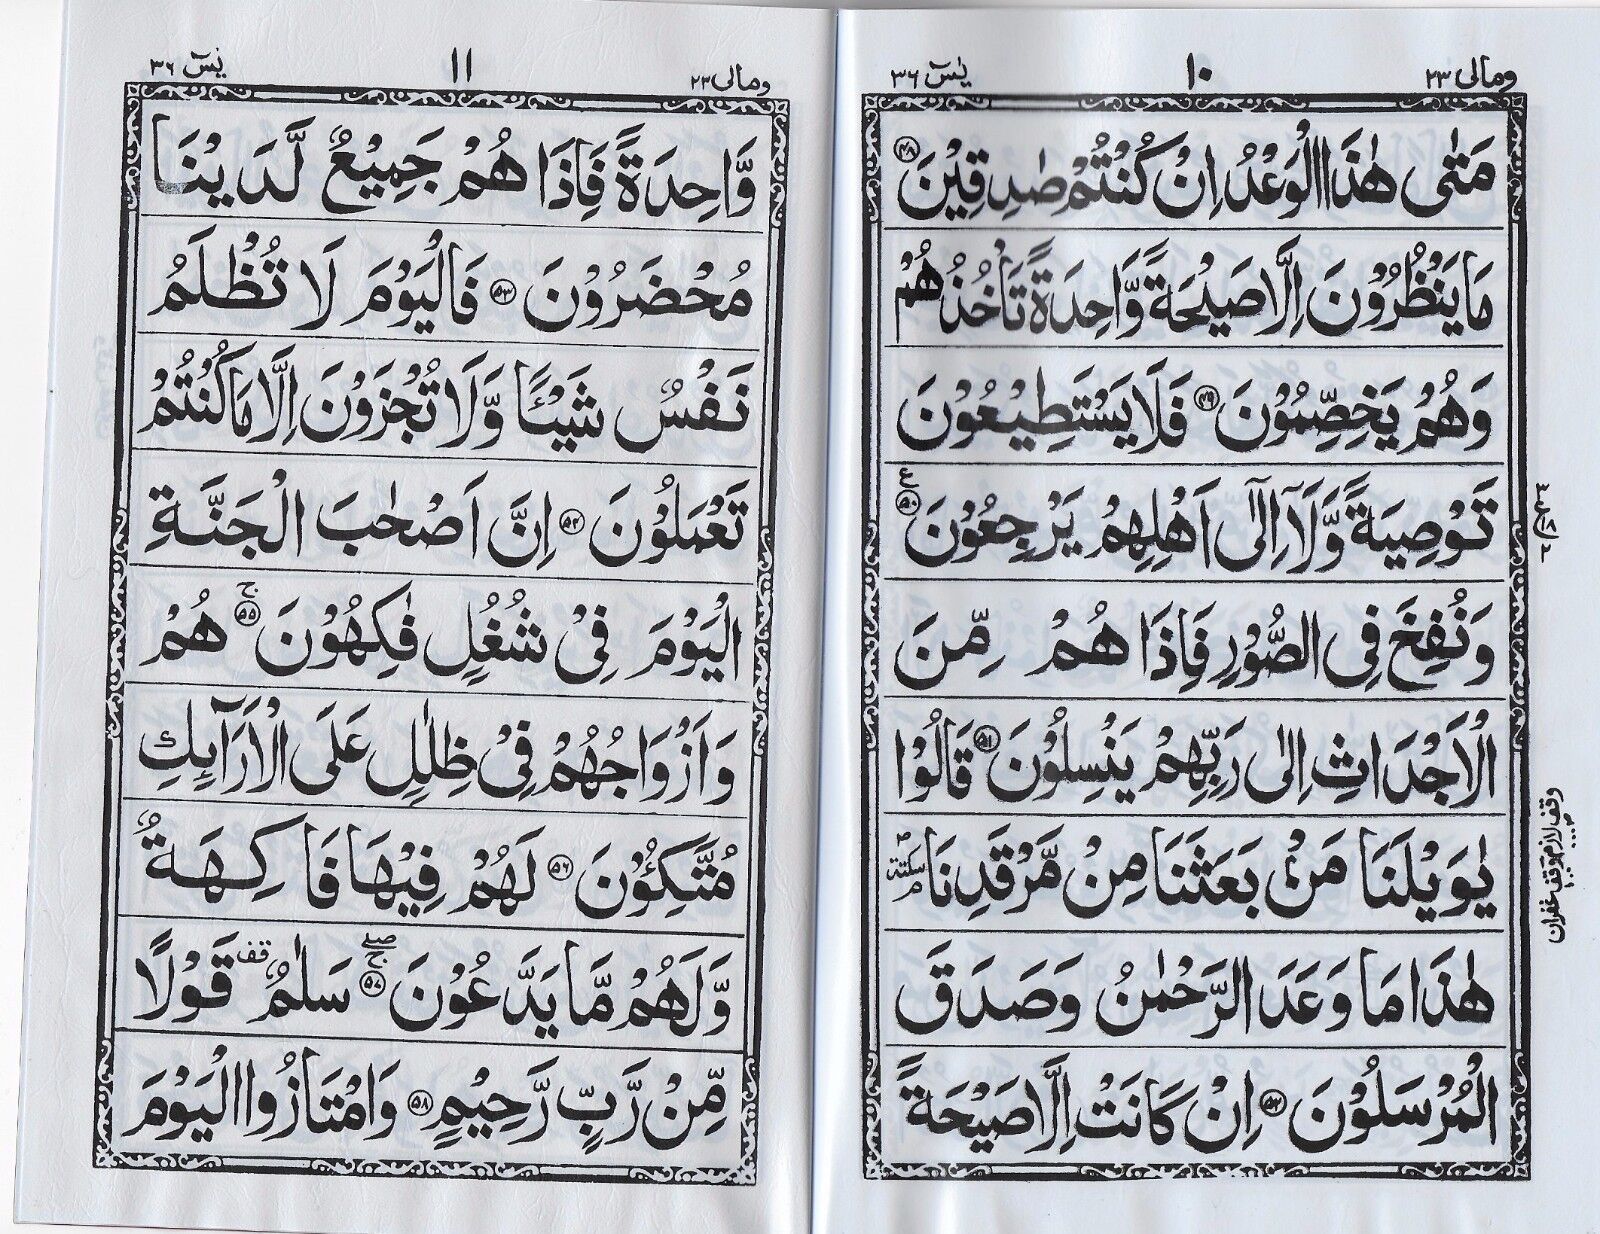 ومالی ۲۳
۱۰
یٰسٓ ۳۶
مَتٰى هٰذَا الْوَعْدُ اِنْ كُنْتُمْ صٰدِقِيْنَ ۴۸
مَا يَنْظُرُوْنَ اِلَّا صَيْحَةً وَّاحِدَةً تَاْخُذُهُمْ
وَهُمْ يَخِصِّمُوْنَ ۴۹ فَلَا يَسْتَطِيْعُوْنَ
تَوْصِيَةً وَّلَاۤ اِلٰۤى اَهْلِهِمْ يَرْجِعُوْنَ ۵۰ ع
وَنُفِخَ فِى الصُّوْرِ فَاِذَا هُمْ مِّنَ
الْاَجْدَاثِ اِلٰى رَبِّهِمْ يَنْسِلُوْنَ ۵۱ قَالُوْا
يٰوَيْلَنَا مَنْۢ بَعَثَنَا مِنْ مَّرْقَدِنَا سكتة م
هٰذَا مَا وَعَدَ الرَّحْمٰنُ وَصَدَقَ
الْمُرْسَلُوْنَ ۵۲ اِنْ كَانَتْ اِلَّا صَيْحَةً
وقف لازم وقف غفران
ومالی ۲۳
۱۱
یٰسٓ ۳۶
وَّاحِدَةً فَاِذَا هُمْ جَمِيْعٌ لَّدَيْنَا
مُحْضَرُوْنَ ۵۳ فَالْيَوْمَ لَا تُظْلَمُ
نَفْسٌ شَيْـًٔا وَّلَا تُجْزَوْنَ اِلَّا مَا كُنْتُمْ
تَعْمَلُوْنَ ۵۴ اِنَّ اَصْحٰبَ الْجَنَّةِ
الْيَوْمَ فِىْ شُغُلٍ فٰكِهُوْنَ ۵۵ ج هُمْ
وَاَزْوَاجُهُمْ فِىْ ظِلٰلٍ عَلَى الْاَرَآئِكِ
مُتَّكِـُٔوْنَ ۵۶ لَهُمْ فِيْهَا فَاكِهَةٌ
وَّلَهُمْ مَّا يَدَّعُوْنَ ۵۷ ج صلے سَلٰمٌ قف قَوْلًا
مِّنْ رَّبٍّ رَّحِيْمٍ ۵۸ وَامْتَازُوا الْيَوْمَ